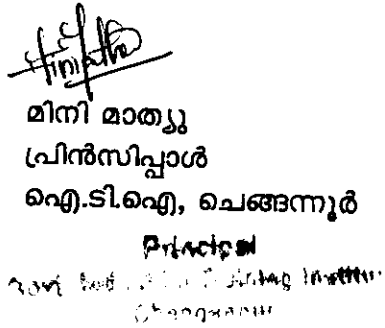 മിനി മാത്യു
പ്രിൻസിപ്പാൾ
ഐ.ടി.ഐ, ചെങ്ങന്നൂർ
Principal
Training Institute
Chengannur